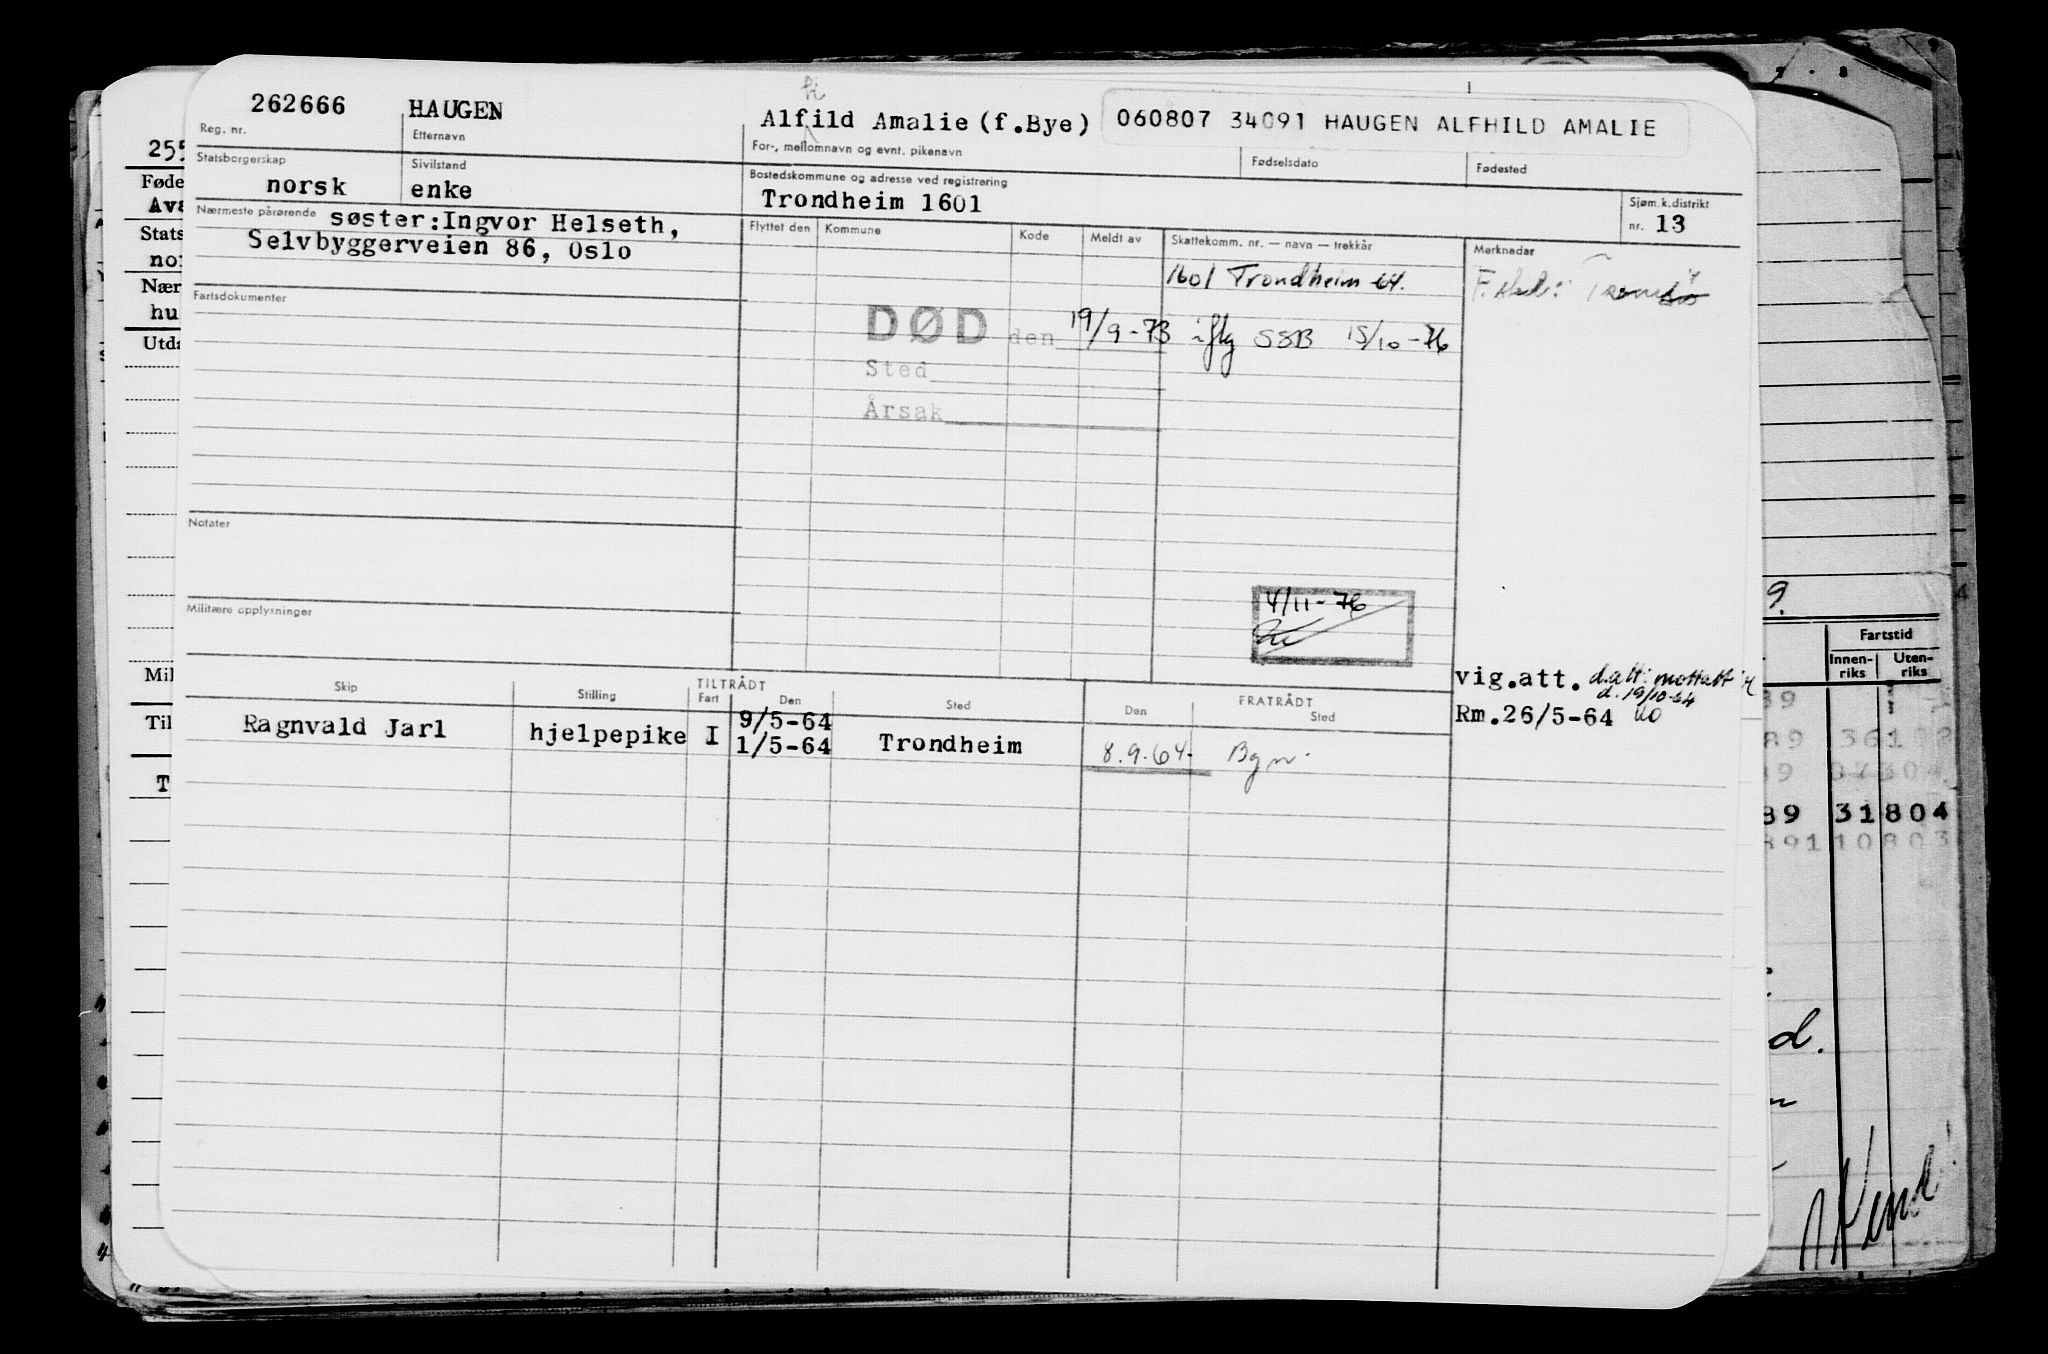 262666 HAUGEN Alfild Amalie (f.Bye) 060807 34091 HAUGEN ALFHILD AMALIE
Reg. nr. Etternavn For-, mellomnavn og evnt. pikenavn Fødselsdato Fødested
Statsborgerskap Sivilstand Bostedskommune og adresse ved registrering Sjøm.k.distrikt
norsk enke Trondheim 1601 nr. 13
Nærmeste pårørende søster:Ingvor Helseth,
Selvbyggerveien 86, Oslo
Flyttet den Kommune Kode Meldt av Skattekomm. nr. — navn — trekkår Merknader
1601 Trondheim 64.
Fartsdokumenter
DØD den 19/9-73 iflg SSB 15/10-76
Sted
Årsak
Notater
4/11-76
Militære opplysninger
vig.att. d.att. mottatt
d. 19/10-64
Rm.26/5-64
Skip Stilling TILTRÅDT Fart Den Sted FRATRÅDT Den Sted
9/5-64
Ragnvald Jarl hjelpepike I 1/5-64 Trondheim 8.9.64. Bgn.
255
Føde
Ava
Stats
no
Nær
hu
Utda
Mil
Til
T
9.
Fartstid
Innen-
riks
Uten-
riks
89
89 36102
39 37304
89 31804
891 10803
d.